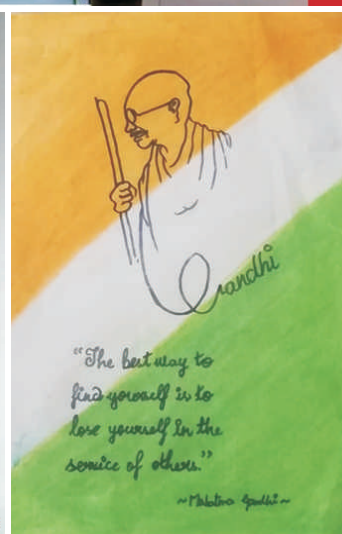 Gandhi
"The best way to
find yourself is to
lose yourself in the
service of others."
~Mahatma Gandhi~